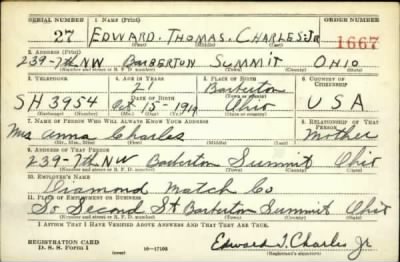 SERIAL NUMBER 1. NAME (Print) ORDER NUMBER
27 EDWARD THOMAS CHARLES JR 1667
(First) (Middle) (Last)
2. ADDRESS (Print)
239-7th NW BARBERTON SUMMIT OHIO
(Number and street or R. F. D. number) (Town) (County) (State)
3. TELEPHONE 4. AGE IN YEARS 5. PLACE OF BIRTH 6. COUNTRY OF CITIZENSHIP
21 Barberton
SH 3954 DATE OF BIRTH (Town or county)
Oct 15-1919 Ohio USA
(Exchange) (Number) (Mo.) (Day) (Yr.) (State or country)
7. NAME OF PERSON WHO WILL ALWAYS KNOW YOUR ADDRESS 8. RELATIONSHIP OF THAT PERSON
Mrs Anna Charles Mother
(Mr., Mrs., Miss) (First) (Middle) (Last)
9. ADDRESS OF THAT PERSON
239-7th NW Barberton Summit Ohio
(Number and street or R. F. D. number) (Town) (County) (State)
10. EMPLOYER'S NAME
Diamond Match Co
11. PLACE OF EMPLOYMENT OR BUSINESS
So Second St Barberton Summit Ohio
(Number and street or R. F. D. number) (Town) (County) (State)
I AFFIRM THAT I HAVE VERIFIED ABOVE ANSWERS AND THAT THEY ARE TRUE.
REGISTRATION CARD
D. S. S. Form 1 (over) 16-17105 Edward T. Charles Jr
(Registrant's signature)